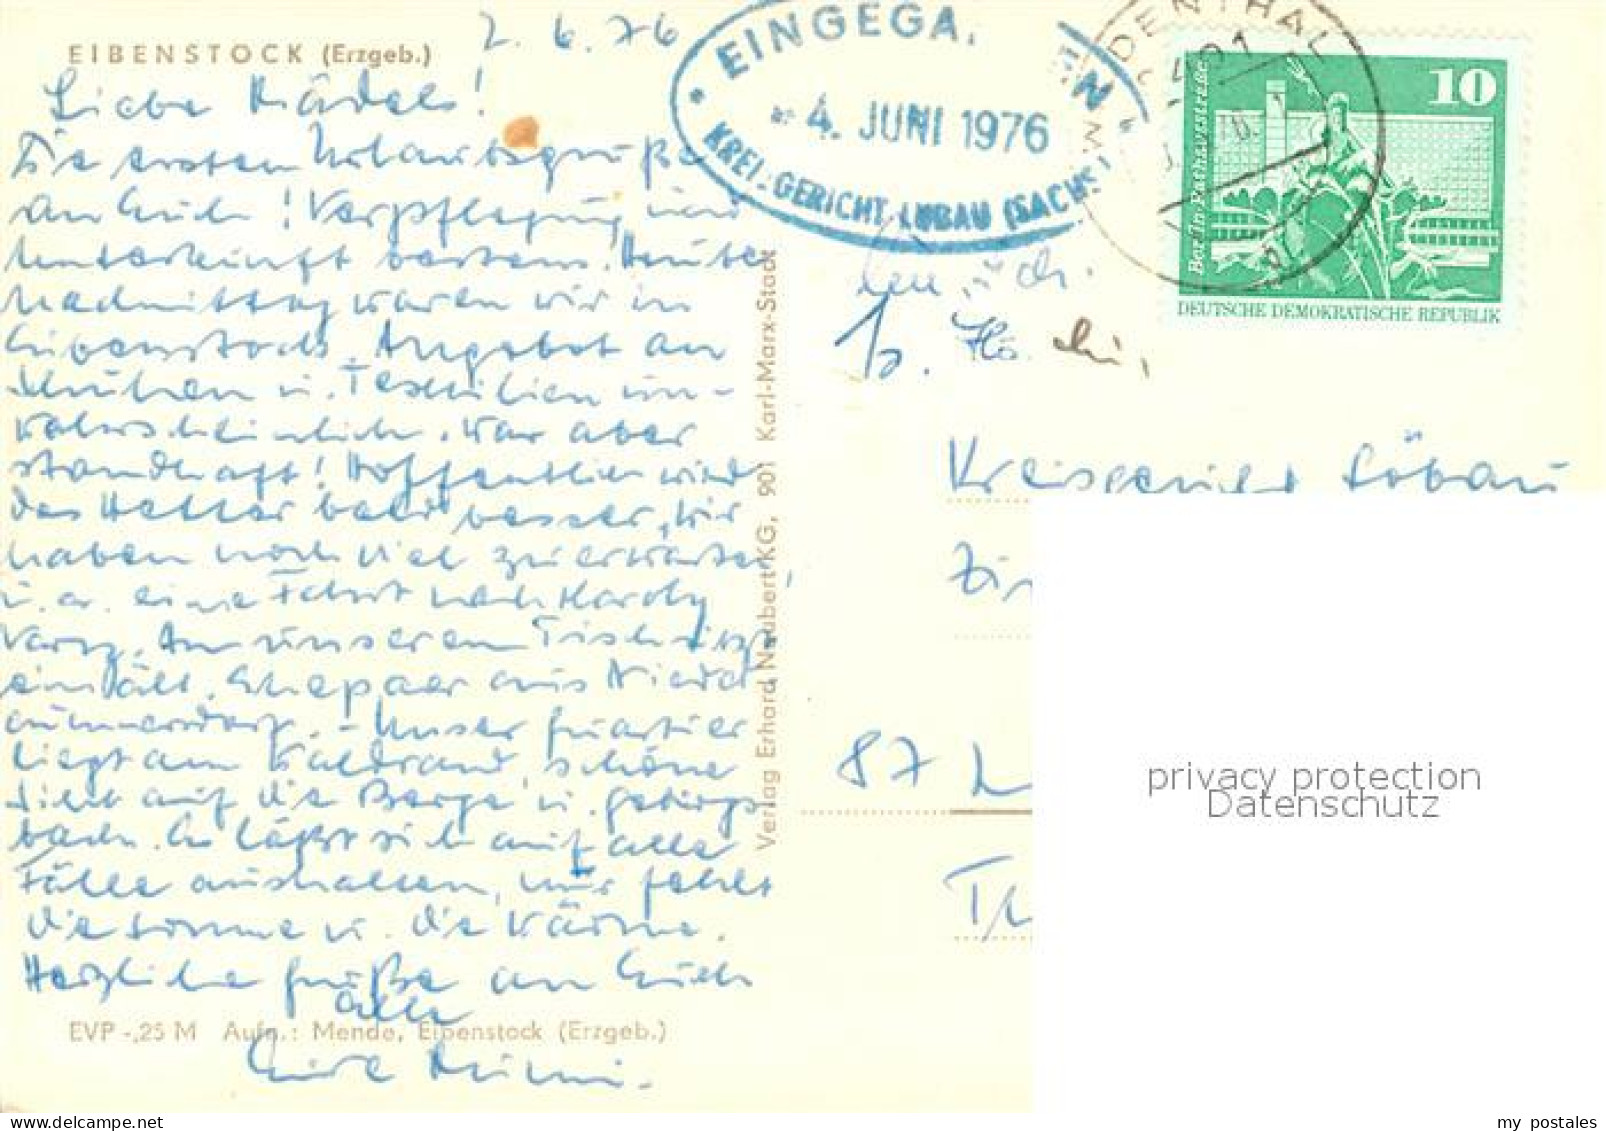 EIBENSTOCK (Erzgeb.)
2. 6. 76
Liebe Mädels!
Die ersten Urlaubsgrüße
an Euch! Verpflegung und
Unterkunft bestens. Heute
Nachmittag waren wir in
Eibenstock. Angebot an
Schuhen u. Textilien un-
wahrscheinlich. War aber
standhaft! Hoffentlich wird
das Wetter bald besser, wir
haben noch viel zu erwarten,
u. a. eine Fahrt nach Karlovy
Vary. An unserem Tisch sitzt
ein ält. Ehepaar aus Nieder
cunnersdorf. - Unser Quartier
liegt am Waldrand, schöne
Sicht auf die Berge u. Gebirgs
bach. Es läßt sich auf alle
Fälle aushalten, nur fehlt
die Sonne u. die Wärme.
Herzliche Grüße an Euch
alle
Eure
EVP -,25 M Aufn.: Mende, Eibenstock (Erzgeb.)
Verlag Erhard Neubert KG, 901 Karl-Marx-Stadt
EINGEGA. EN
4. JUNI 1976
KREI.GERICHT LÖBAU (SACHS
DENTHAL
10
Berlin Rathausstraße
DEUTSCHE DEMOKRATISCHE REPUBLIK
Kreisgericht Löbau
87 L
privacy protection
Datenschutz
my postales